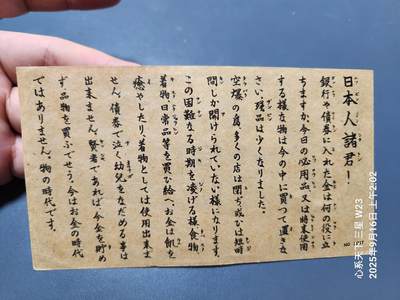 日本人諸君！
銀行や債券に入れた金は何の役に立
ちますか、今日の必用品又は時来使用
する様な物は今の中に買つて置きな
さい、残品は少くなりました。
空爆の為多くの店は閉ぢ或ひは短時
間しか開けられていない様になります。
この困難なる時期を凌げる様食物
着物日常品等を買ひ給へ、お金は飢を
癒やしたり、着物としては使用出来ま
せん、債券で泣く幼兒をなだめる事は
出来ません、賢者であれば今金を貯め
ず品物を買ふでせう、今はお金の時代
ではありません、物の時代です。
心系天下三星 W23
2025年9月16日 上午2:02